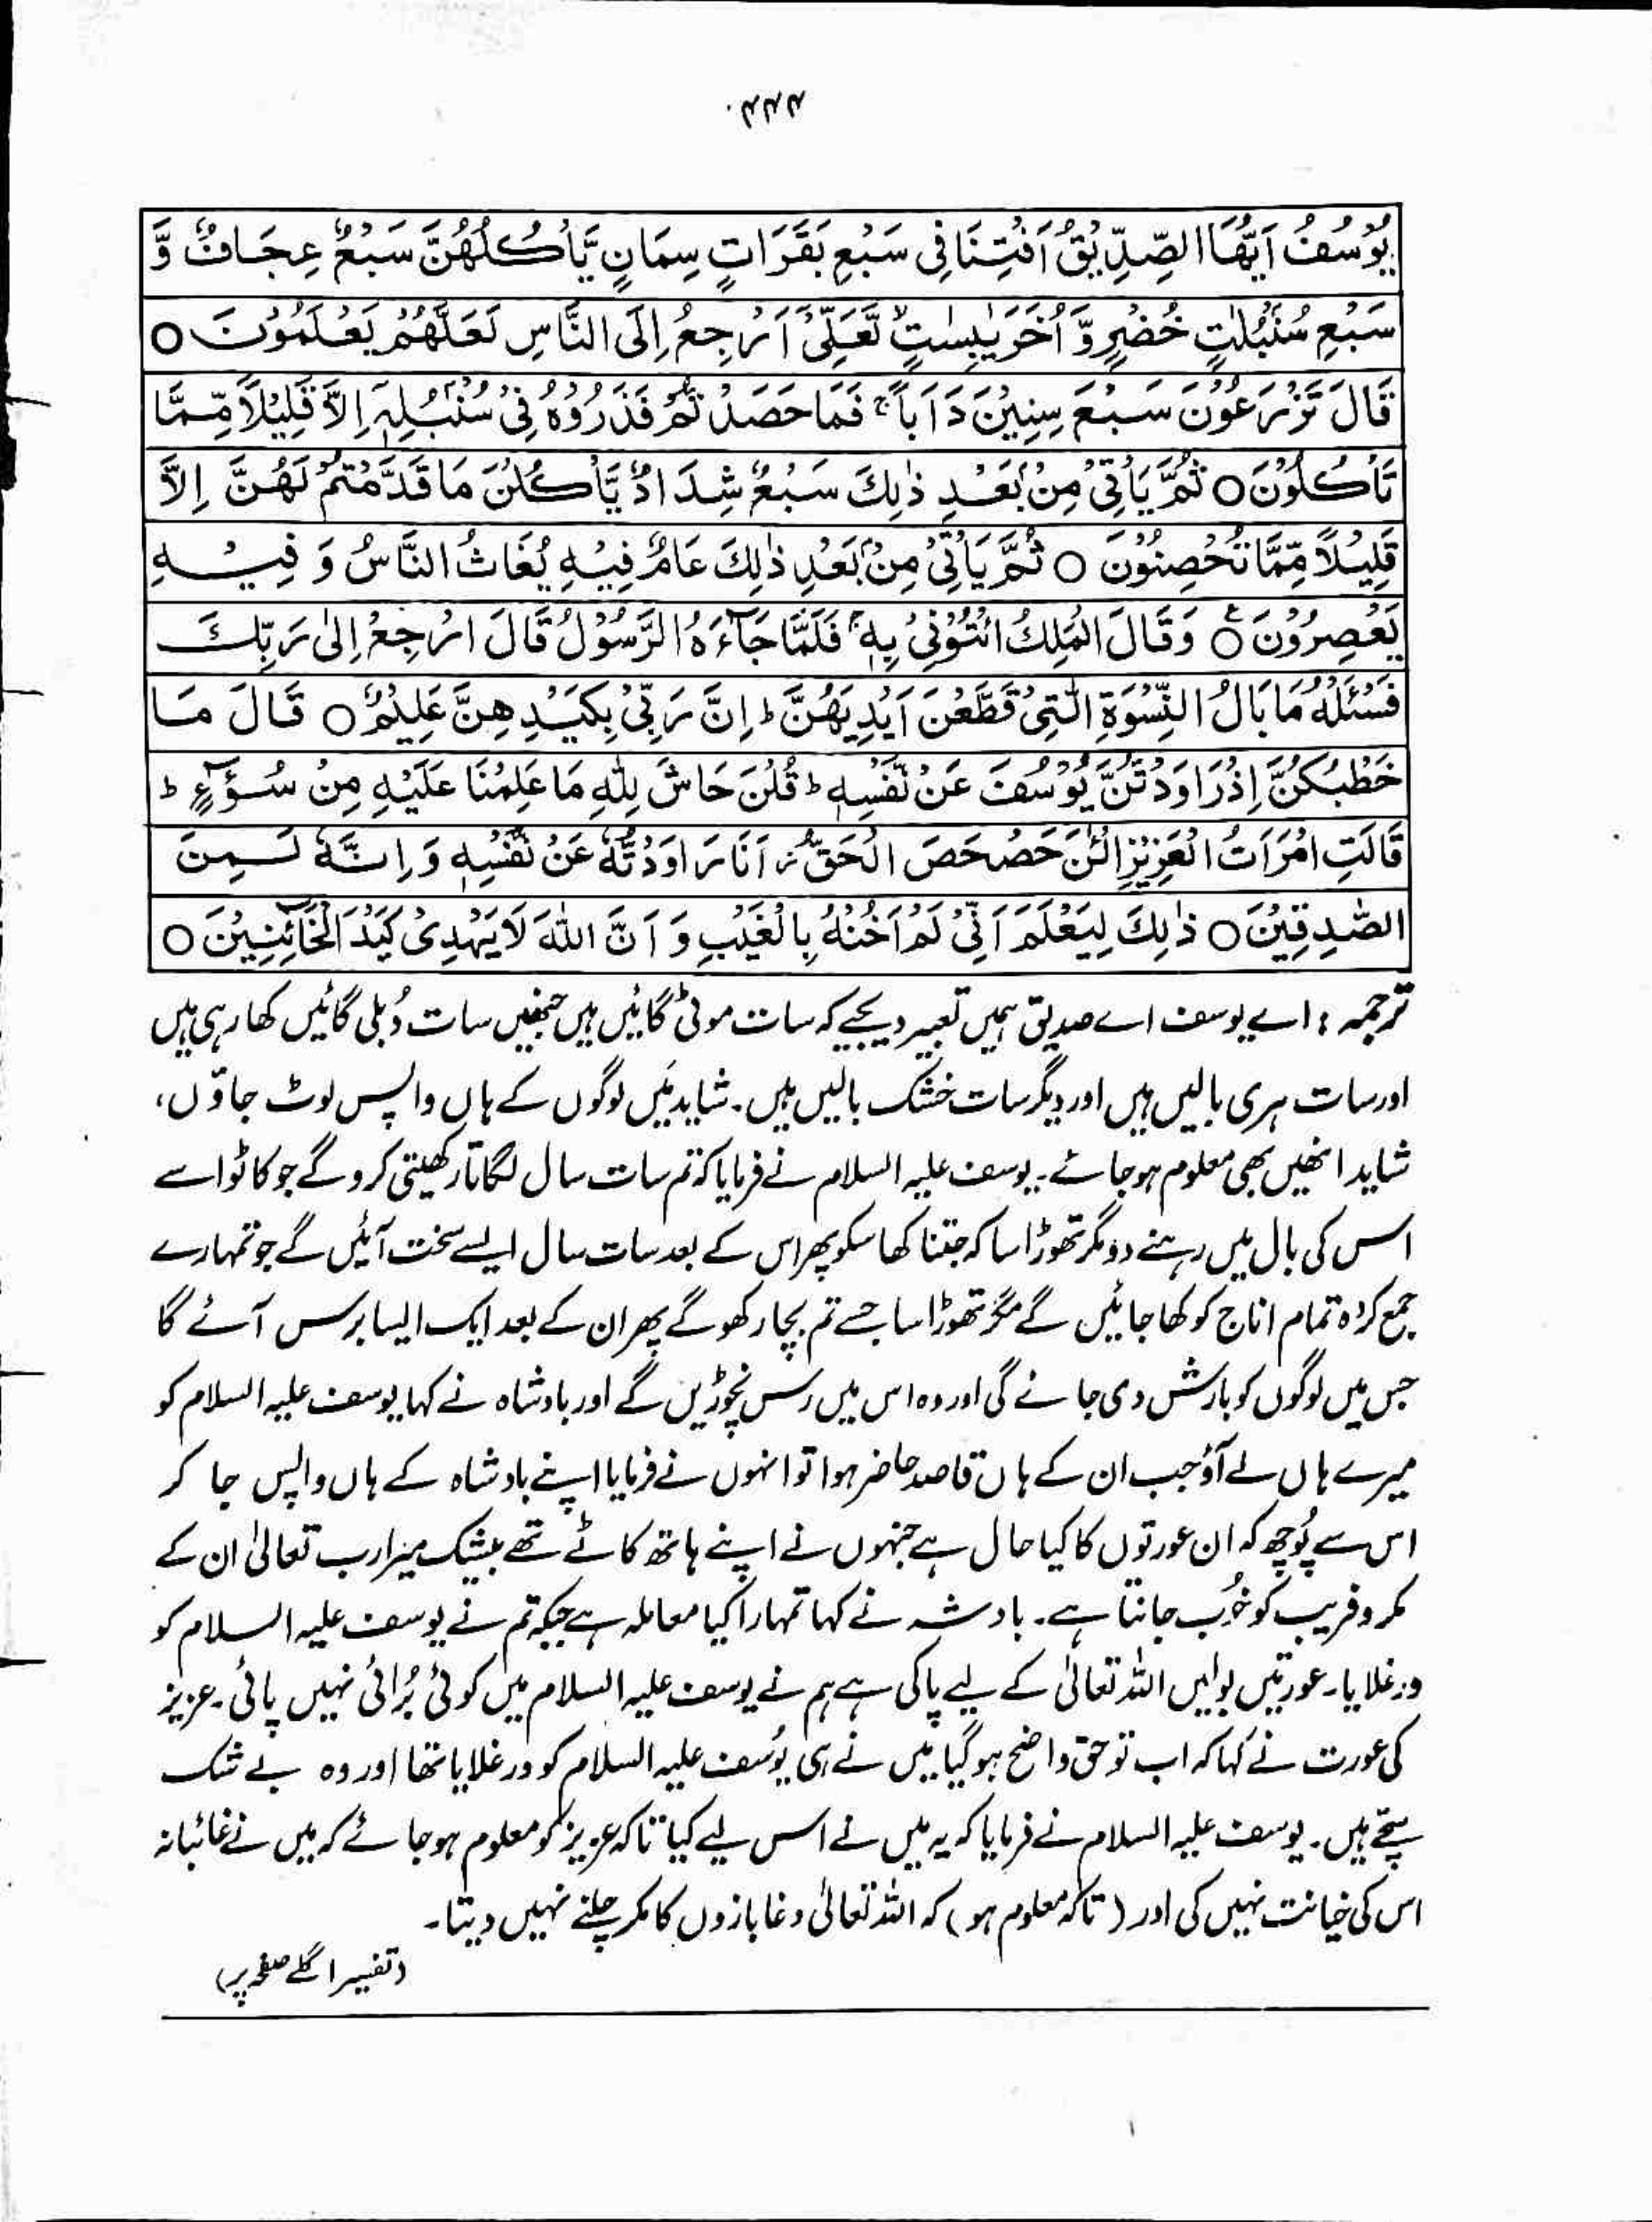 ۴۴۴
يُوْسُفُ اَيُّهَا الصِّدِّيْقُ اَفْتِنَا فِىْ سَبْعِ بَقَرَاتٍ سِمَانٍ يَّاْكُلُهُنَّ سَبْعٌ عِجَافٌ وَّ
سَبْعِ سُنْۢبُلٰتٍ خُضْرٍ وَّ اُخَرَ يٰبِسٰتٍ ۙ لَّعَلِّىْٓ اَرْجِعُ اِلَى النَّاسِ لَعَلَّهُمْ يَعْلَمُوْنَ ○
قَالَ تَزْرَعُوْنَ سَبْعَ سِنِيْنَ دَاَبًا ۚ فَمَا حَصَدْتُّمْ فَذَرُوْهُ فِىْ سُنْۢبُلِهٖٓ اِلَّا قَلِيْلًا مِّمَّا
تَاْكُلُوْنَ ○ ثُمَّ يَاْتِىْ مِنْۢ بَعْدِ ذٰلِكَ سَبْعٌ شِدَادٌ يَّاْكُلْنَ مَا قَدَّمْتُمْ لَهُنَّ اِلَّا
قَلِيْلًا مِّمَّا تُحْصِنُوْنَ ○ ثُمَّ يَاْتِىْ مِنْۢ بَعْدِ ذٰلِكَ عَامٌ فِيْهِ يُغَاثُ النَّاسُ وَ فِيْهِ
يَعْصِرُوْنَ ○ع وَقَالَ الْمَلِكُ ائْتُوْنِىْ بِهٖ ۚ فَلَمَّا جَآءَهُ الرَّسُوْلُ قَالَ ارْجِعْ اِلٰى رَبِّكَ
فَسْئَلْهُ مَا بَالُ النِّسْوَةِ الّٰتِىْ قَطَّعْنَ اَيْدِيَهُنَّ ؕ اِنَّ رَبِّىْ بِكَيْدِهِنَّ عَلِيْمٌ ○ قَالَ مَا
خَطْبُكُنَّ اِذْ رَاوَدْتُّنَّ يُوْسُفَ عَنْ نَّفْسِهٖ ؕ قُلْنَ حَاشَ لِلّٰهِ مَا عَلِمْنَا عَلَيْهِ مِنْ سُوْٓءٍ ؕ
قَالَتِ امْرَاَتُ الْعَزِيْزِ الْئٰنَ حَصْحَصَ الْحَقُّ ز اَنَا رَاوَدْتُّهٗ عَنْ نَّفْسِهٖ وَ اِنَّهٗ لَمِنَ
الصّٰدِقِيْنَ ○ ذٰلِكَ لِيَعْلَمَ اَنِّىْ لَمْ اَخُنْهُ بِالْغَيْبِ وَ اَنَّ اللّٰهَ لَا يَهْدِىْ كَيْدَ الْخَآئِنِيْنَ ○
ترجمہ : اے یوسف اے صدیق ہمیں تعبیر دیجیے کہ سات موٹی گائیں ہیں جنھیں سات دُبلی گائیں کھا رہی ہیں
اور سات ہری بالیں ہیں اور دیگر سات خشک بالیں ہیں۔ شاید مَیں لوگوں کے ہاں واپس لوٹ جاؤں،
شاید انھیں بھی معلوم ہو جائے۔ یوسف علیہ السلام نے فرمایا کہ تم سات سال لگاتار کھیتی کرو گے جو کاٹو اسے
اس کی بال میں رہنے دو مگر تھوڑا سا کہ جتنا کھا سکو پھر اس کے بعد سات سال ایسے سخت آئیں گے جو تمہارے
جمع کردہ تمام اناج کو کھا جائیں گے مگر تھوڑا سا جسے تم بچا رکھو گے پھر ان کے بعد ایک ایسا برس آئے گا
جس میں لوگوں کو بارش دی جائے گی اور وہ اس میں رس نچوڑیں گے اور بادشاہ نے کہا یوسف علیہ السلام کو
میرے ہاں لے آؤ جب ان کے ہاں قاصد حاضر ہوا تو انہوں نے فرمایا اپنے بادشاہ کے ہاں واپس جا کر
اس سے پُوچھ کہ ان عورتوں کا کیا حال ہے جنہوں نے اپنے ہاتھ کاٹے تھے بیشک میرا رب تعالیٰ ان کے
مکر و فریب کو خُوب جانتا ہے۔ بادشہ نے کہا تمہارا کیا معاملہ ہے جبکہ تم نے یوسف علیہ السلام کو
ورغلایا۔ عورتیں بولیں اللہ تعالیٰ کے لیے پاکی ہے ہم نے یوسف علیہ السلام میں کوئی بُرائی نہیں پائی۔ عزیز
کی عورت نے کہا کہ اب تو حق واضح ہو گیا میں نے ہی یُوسف علیہ السلام کو ورغلایا تھا اور وہ بے شک
سچّے ہیں۔ یوسف علیہ السلام نے فرمایا کہ یہ میں نے اس لیے کیا تاکہ عزیز کو معلوم ہو جائے کہ میں نے غائبانہ
اس کی خیانت نہیں کی اور (تاکہ معلوم ہو) کہ اللہ تعالیٰ دغا بازوں کا مکر چلنے نہیں دیتا۔
(تفسیر اگلے صفحہ پر)